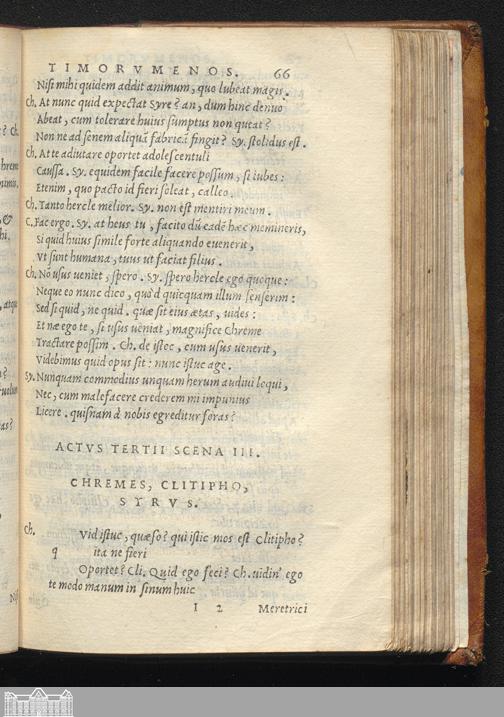 TIMORVMENOS. 66
Nisi mihi quidem addit animum, quo lubeat magis.
Ch. At nunc quid expectat Syre? an, dum hinc denuo
Abeat, cum tolerare huius sumptus non queat?
Non ne ad senem aliquā fabricā fingit? Sy. stolidus est.
Ch. At te adiutare oportet adolescentuli
Caussa. Sy. equidem facile facere possum, si iubes:
Etenim, quo pacto id fieri soleat, calleo.
Ch. Tanto hercle melior. Sy. non est mentiri meum.
C. Fac ergo. Sy. at heus tu, facito dū eadē hæc memineris,
Si quid huius simile forte aliquando euenerit,
Vt sunt humana, tuus ut faciat filius.
Ch. Nō usus ueniet, spero. Sy. spero hercle ego quoque:
Neque eo nunc dico, quòd quicquam illum senserim:
Sed si quid, ne quid. quæ sit eius ætas, uides:
Et næ ego te, si usus ueniat, magnifice Chreme
Tractare possim. Ch. de istoc, cum usus uenerit,
Videbimus quid opus sit: nunc istuc age.
Sy. Nunquam commodius unquam herum audiui loqui,
Nec, cum malefacere crederem mi impunius
Licere. quisnam à nobis egreditur foras?
ACTVS TERTII SCENA III.
CHREMES, CLITIPHO,
SYRVS.
Ch. vid istuc, quæso? qui istic mos est Clitipho?
q ita ne fieri
Oportet? Cli. Quid ego feci? Ch. uidin' ego
te modo manum in sinum huic
I 2 Meretrici